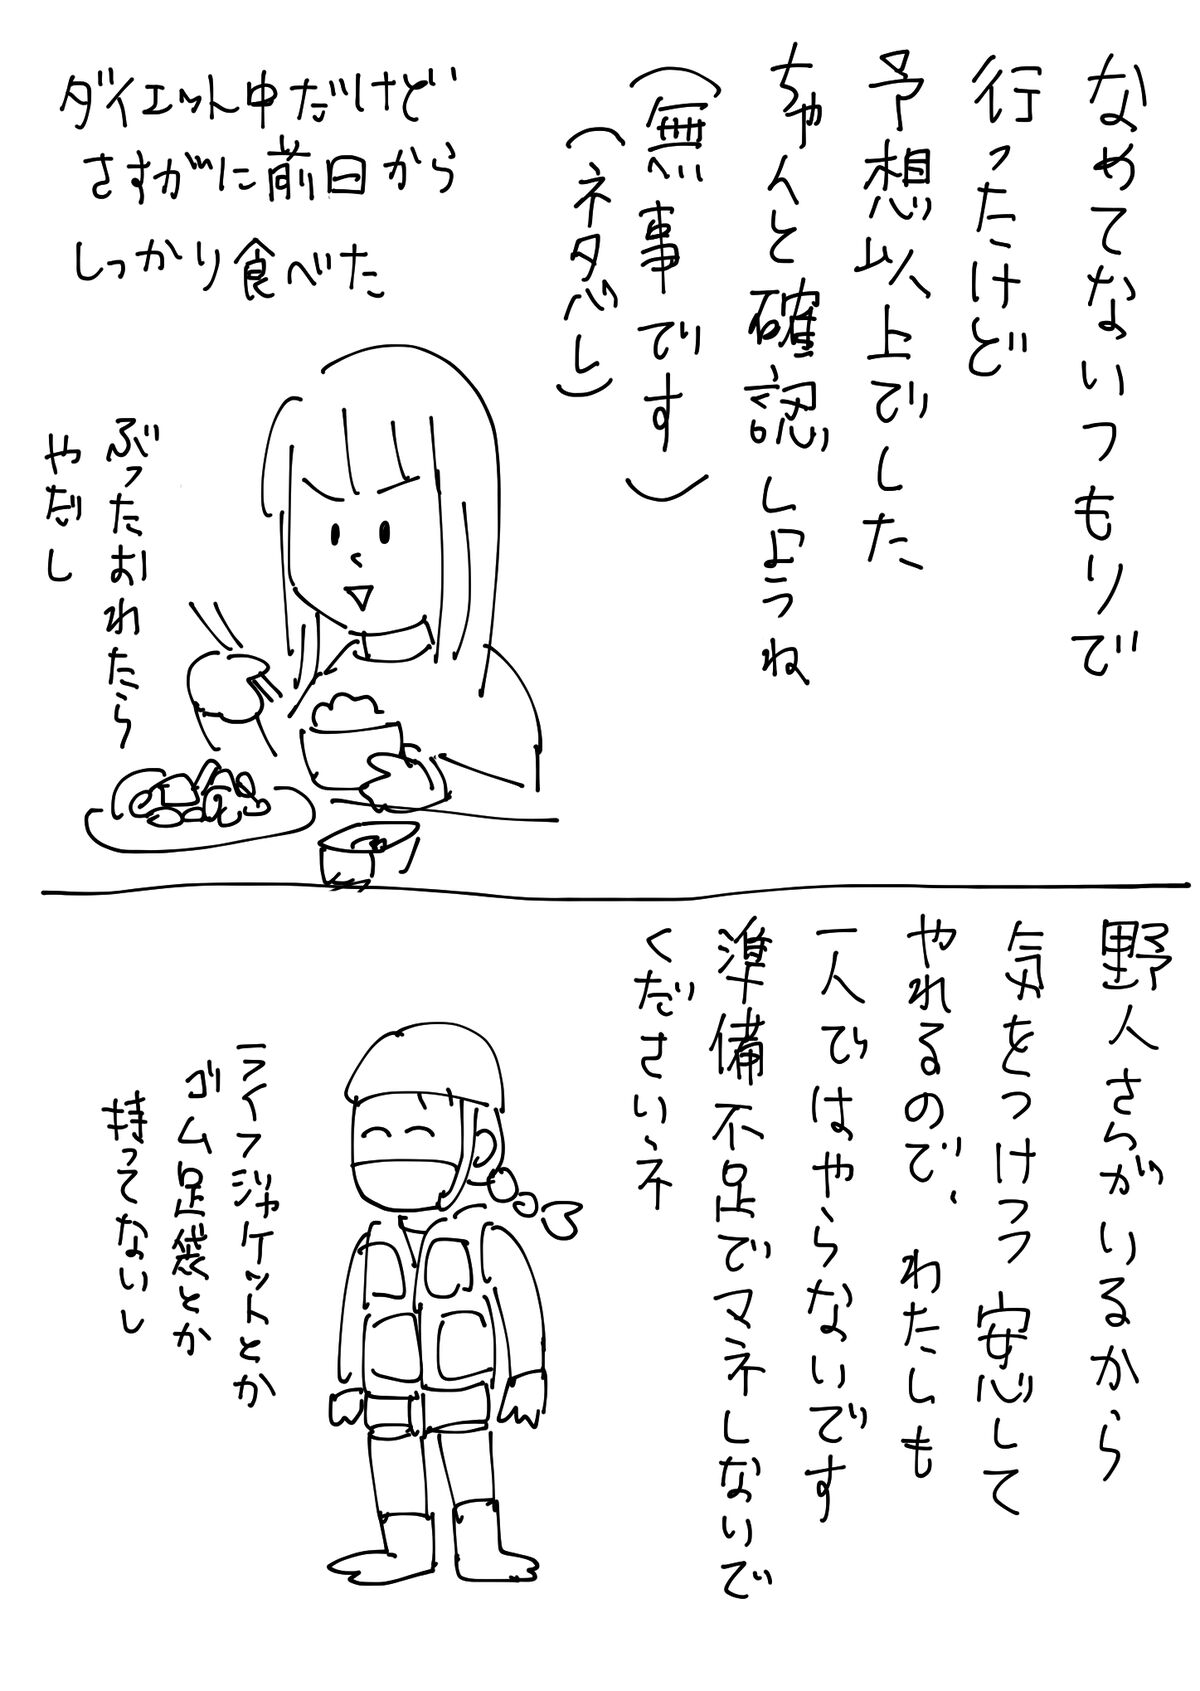 なめてないつもりで
行ったけど
予想以上でした
ちゃんと確認しようね
(無事です)
(ネタバレ)
ダイエット中だけど
さすがに前日から
しっかり食べた
ぶったおれたら
やだし
野人さらがいるから
気をつけつつ安心して
やれるので、わたしも
一人ではやらないです
準備不足でマネしないで
くださいネ
ライフジャケットとか
ゴム足袋とか
持ってないし